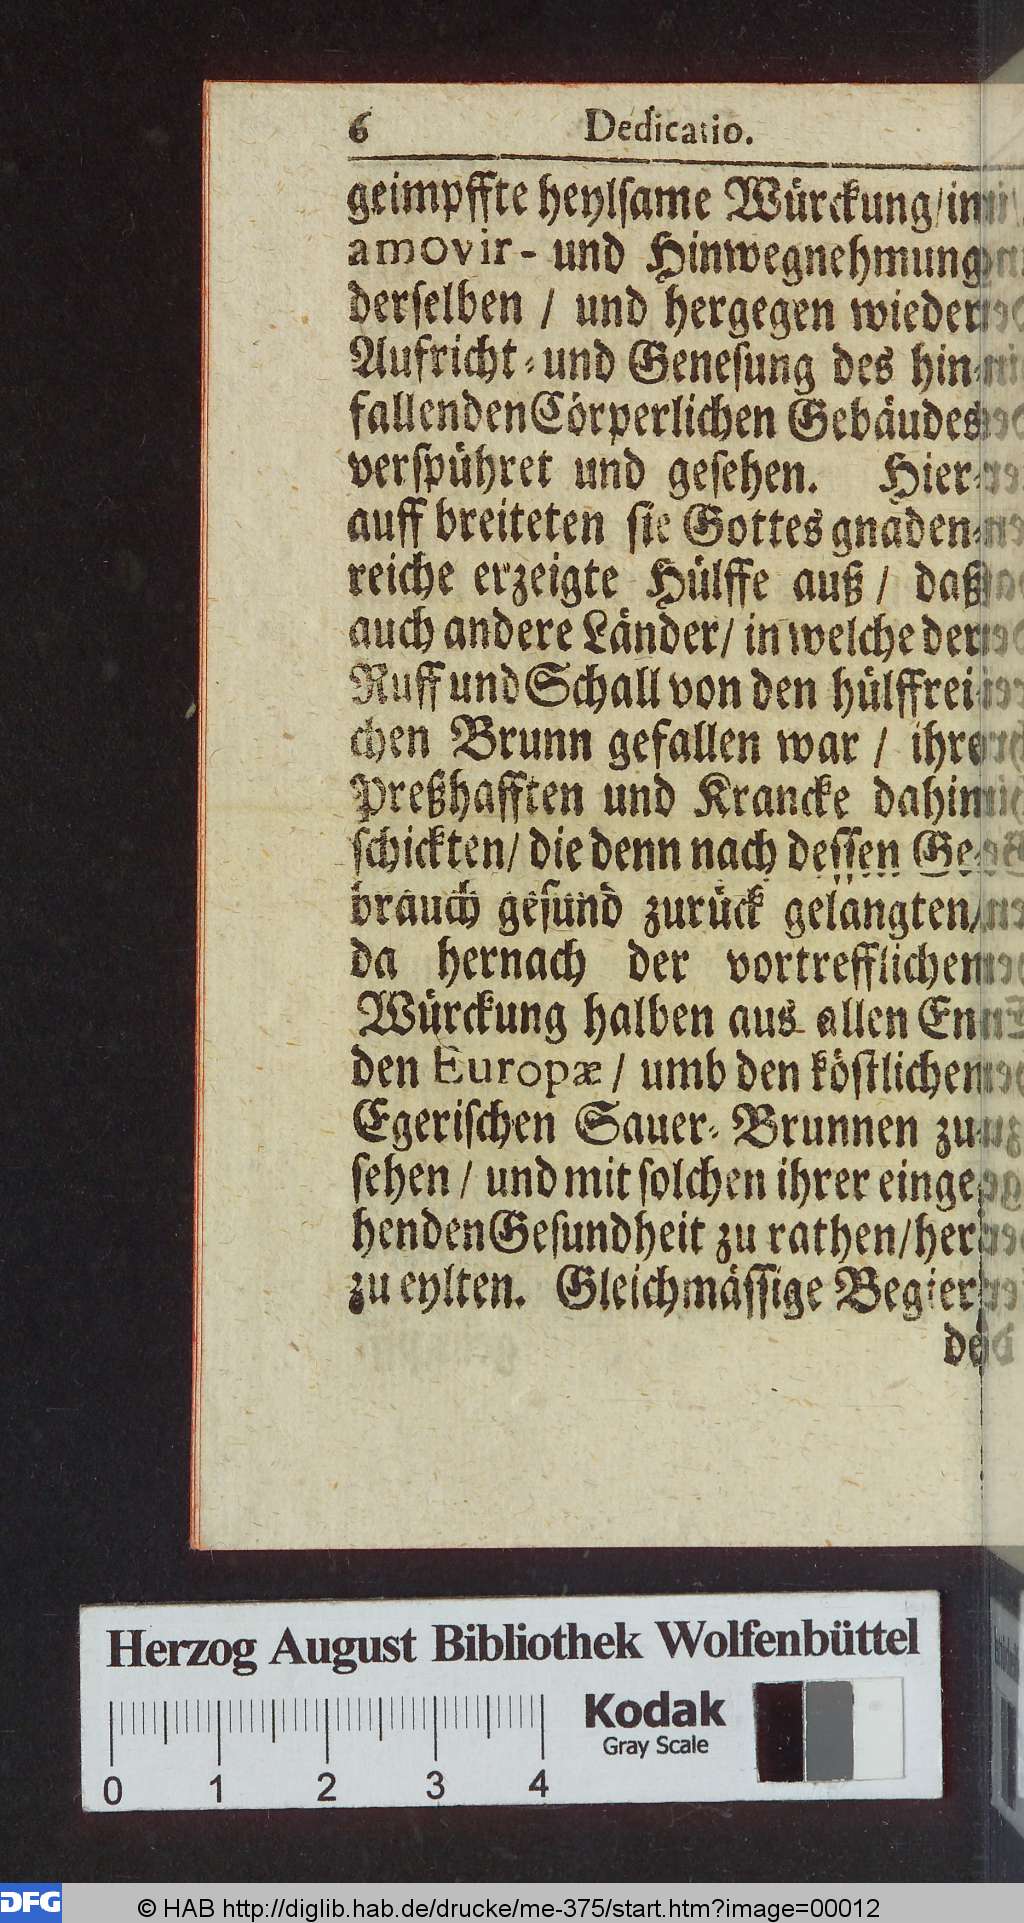 6 Dedicatio.
geimpffte heylsame Würckung/in
amovir- und Hinwegnehmung
derselben / und hergegen wieder
Aufricht- und Genesung des hin-
fallenden Cörperlichen Gebäudes
verspühret und gesehen. Hier-
auff breiteten sie Gottes gnaden-
reiche erzeigte Hülffe auß / daß
auch andere Länder/ in welche der
Ruff und Schall von den hülffrei-
chen Brunn gefallen war / ihre
Preßhafften und Krancke dahin
schickten/ die denn nach dessen Ge-
brauch gesund zurück gelangten/
da hernach der vortrefflichen
Würckung halben aus allen En-
den Europæ / umb den köstlichen
Egerischen Sauer-Brunnen zu
sehen / und mit solchen ihrer einge-
henden Gesundheit zu rathen/ her-
zu eylten. Gleichmässige Begier-
de
Herzog August Bibliothek Wolfenbüttel
Kodak
Gray Scale
0 1 2 3 4
DFG © HAB http://diglib.hab.de/drucke/me-375/start.htm?image=00012